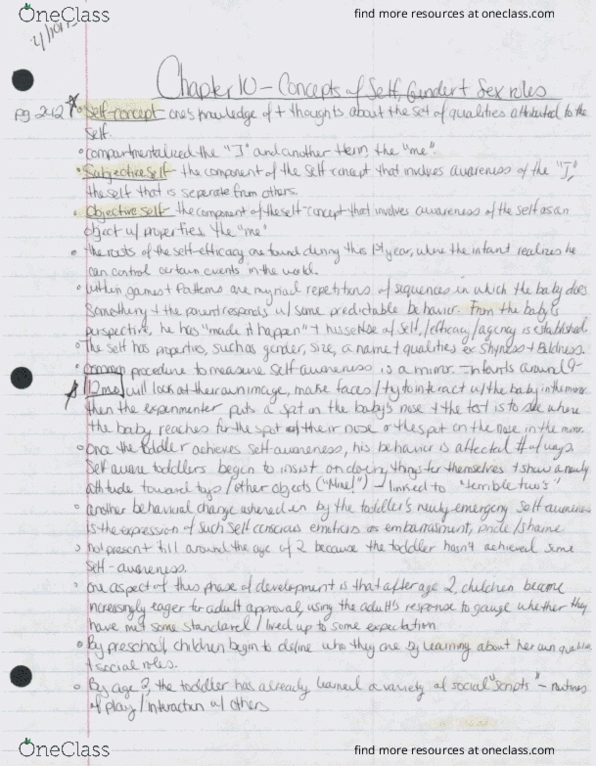 OneClass
find more resources at oneclass.com
Chapter 10 - Concepts of Self, Gender + Sex roles
pg 242 * • Self-concept - one's knowledge of + thoughts about the set of qualities attributed to the
self.
• compartmentalized the "I" and another term, the "me".
• Subjective self - the component of the self concept that involves awareness of the "I",
the self that is seperate from others.
• Objective self - the component of the self-concept that involves awareness of the self as an
object w/ properties the "me"
• The roots of the self-efficacy are found during this 1st year, where the infant realizes he
can control certain events in the world.
• within games + patterns are myriad repetitions of sequences in which the baby does
something + the parent responds w/ some predictable behavior. From the baby's
perspective, he has "made it happen" + his sense of self/efficacy/agency is established.
• The self has properties, such as gender, size, a name + qualities ex Shyness + Boldness.
• common procedure to measure self awareness is a mirror. Infants around 9-
12 mo will look at their own image, make faces/try to interact w/ the baby in the mirror
then the experimenter puts a spot on the baby's nose + the test is to see where
the baby reaches for the spot of their nose or the spot on the nose in the mirror.
• Once the toddler achieves self-awareness, his behavior is affected # of ways.
Self aware toddlers begin to insist on doing things for themselves + show a newly
attitude toward toys/other objects ("Mine!") → linked to "terrible two's"
• another behavioral change ushered in by the toddler's newly emerging self awareness
is the expression of such self conscious emotions as embarrassment, pride/shame.
• not present till around the age of 2 because the toddler hasn't achieved some
self-awareness.
• one aspect of this phase of development is that after age 2, children become
increasingly eager for adult approval, using the adult's response to gauge whether they
have met some standard/lived up to some expectation.
• By preschool, children begin to define who they are by learning about her own
+ social roles.
• By age the toddler has already learned a variety of social "scripts" - routines
of play/interaction w/ others
OneClass
find more resources at oneclass.com